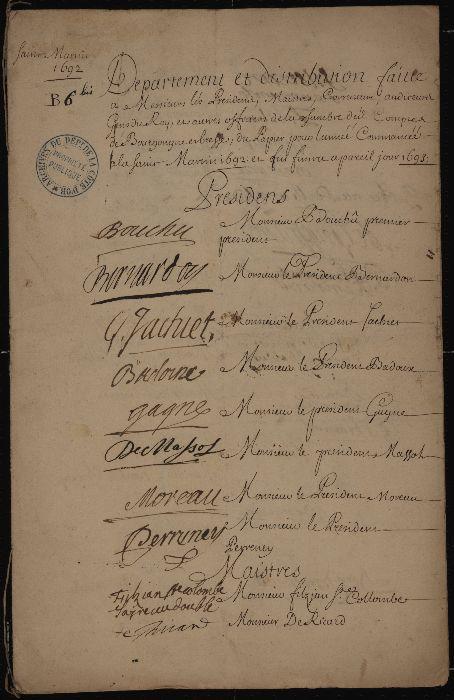 Saint Martin
1692
B 6 bis
Departement et distribution faitte
a Messieurs les Presidens, Maistres, Correcteurs, auditeurs
Gens du Roy, et autres officiers de la chambre des Comptes
de Bourgongne et bresse, du Papier pour l'année Commancée
a la saint Martin 1692 et qui finira a pareil jour 1693.
ARCHIVES DU DÉPT DE LA CÔTE D'OR
PROPRIÉTÉ PUBLIQUE
Presidens
Bouchu Monsieur Bouchu premier
president
Bernardon Monsieur le President Bernardon
G. Jachiet. Monsieur le President Jachiet
Badoux Monsieur le President Badoux
gagne Monsieur le president Gagne
De Massol Monsieur le president Massol
Moreau Monsieur le President Moreau
Perreney Monsieur le President
Perreney
Maistres
Filzjan ste colombe Monsieur filzjan ste Collombe
Monsieur De Ricard